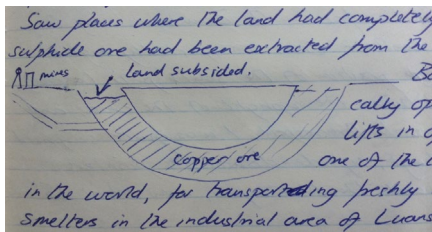 Saw places where the land had completely
sulphide ore had been extracted from the
mines land subsided.
calty op
lifts in o
copper ore one of the
in the world, for transporting freshly
smelters in the industrial area of Luans